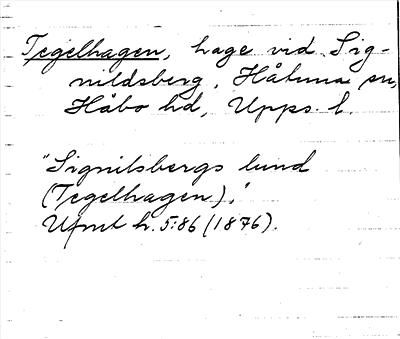 Tegelhagen, hage vid Sig-
nildsberg, Håtuna sn,
Håbo hd, Upps. l.
"Signilsbergs lund
(Tegelhagen),"
Ufmt h. 5:86 (1876).